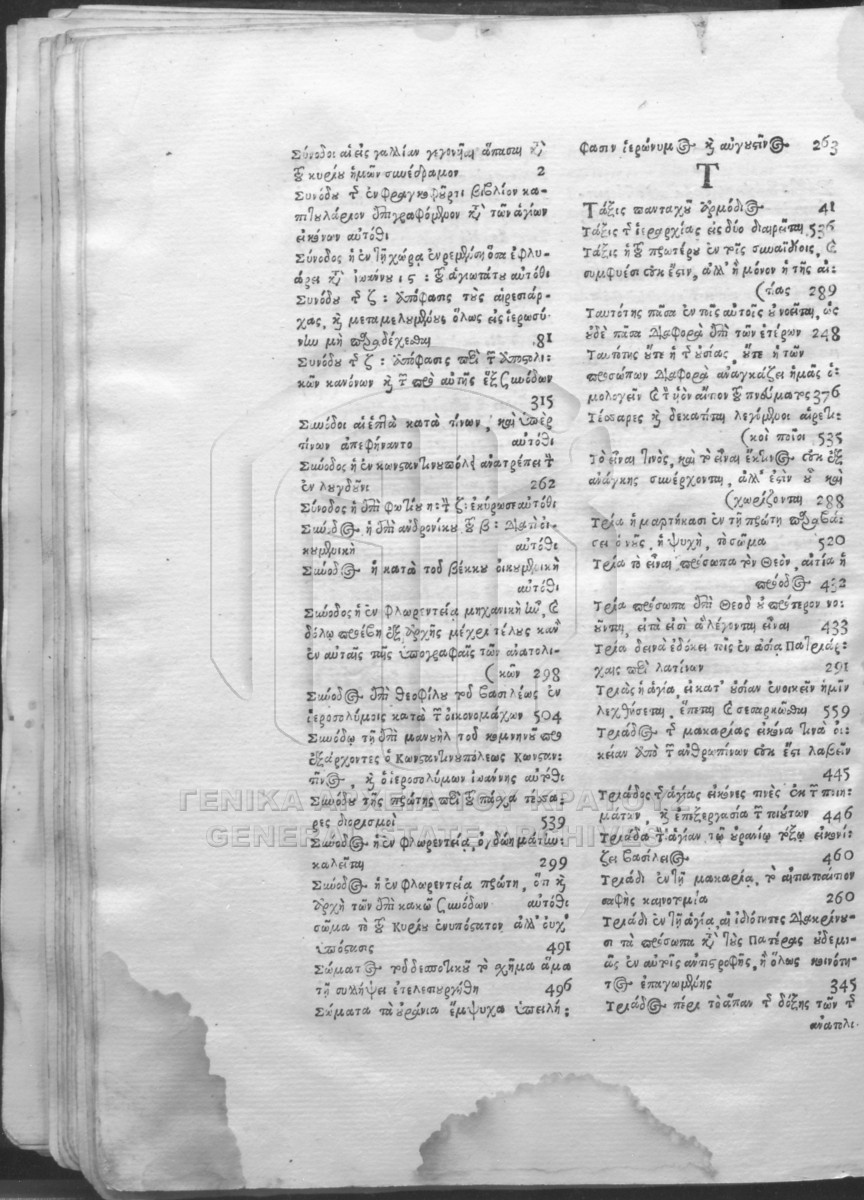 Σύνοδοι αἱ εἰς γαλλίαν γεγονῆαι ἅπασαι κτ̀
τοῦ κυρίου ἡμῶν συνέδραμον 2
Συνόδου τῆς ἐν Φραγκοφῦρτι βιβλίον κα-
πιτουλάριον ἐπιγραφόμενον κτ̀ τῶν ἁγίων
εἰκόνων αὐτόθι
Σύνοδος ἡ ἐν τῇ χώρᾳ
Συνόδου τῆς ζ: ἀπόφασις τοὺς αἱρεσιάρ-
χας, καὶ μεταμελουμένους ὅλως εἰς ἱερωσύ-
νην μὴ προσδέχεσθαι 81
Συνόδου τῆς ζ: ἀπόφασις περὶ τῶν ἀποστολι-
κῶν κανόνων καὶ τῶν πρὸ αὐτῆς ἓξ συνόδων
315
Σύνοδοι αἱ ἑπτὰ κατὰ τίνων, καὶ ὑπὲρ
τίνων ἀπεφήναντο αὐτόθι
Σύνοδος ἡ ἐν κωνσταντινουπόλει ἀνατρέπει τὴν
ἐν λουγδούνι 262
Σύνοδος ἡ ἐπὶ Φωτίου η: τὴν ζ: ἐκύρωσε αὐτόθι
Σύνοδος ἡ ἐπὶ ἀνδρονίκου τοῦ β: διατὶ οἰ-
κουμενικὴ αὐτόθι
Σύνοδος ἡ κατὰ τοῦ βέκκου οἰκουμενικὴ
αὐτόθι
Σύνοδος ἡ ἐν Φλωρεντείᾳ μηχανικὴ ἦν, καὶ
δόλῳ προέβη ἐξ ἀρχῆς μέχρι τέλους καὶ
ἐν αὐταῖς ταῖς ὑπογραφαῖς τῶν ἀνατολι-
(κῶν 298
Σύνοδος ἐπὶ Θεοφίλου τοῦ βασιλέως ἐν
ἱεροσολύμοις κατὰ τῶν οἰκονομάχων 504
Συνόδῳ τῇ ἐπὶ μανουὴλ τοῦ κομνηνοῦ
ἐξάρχοντες ὁ Κωνσταντινουπόλεως Κωνσταν-
τῖνος, καὶ ὁ ἱεροσολύμων ἰωάννης αὐτόθι
Συνόδου τῆς πρώτης περὶ τοῦ πάσχα τέσσα-
ρες διορισμοὶ 539
Σύνοδος ἡ ἐν φλωρεντείᾳ, ὀγδόη μάτην
καλεῖται 299
Σύνοδος ἡ ἐν φλωρεντείᾳ πρώτη, ὅτι καὶ
ἀρχὴ τῶν ἐπὶ κακῷ συνόδων αὐτόθι
σῶμα τὸ τοῦ Κυρίου ἐνυπόστατον ἀλλ' οὐχ'
ὑπόστασις 491
Σώματος τοῦ δεσποτικοῦ τὸ σχῆμα ἅμα
τῇ συλλήψει ἐτελεσιουργήθη 496
Σώματα τὰ οὐράνια ἔμψυχα ὑπειλή:
φασιν ἱερώνυμος καὶ αὐγουστῖνος 263
Τ
Τάξις πανταχοῦ ἁρμόδιος 41
Τάξις τῆς ἱεραρχίας εἰς δύο διαιρεῖται 536
Τάξις ἡ τοῦ πρωτέρου ἐν τοῖς συναϊδίοις, καὶ
συμφυέσι οὐκ ἔστιν, ἀλλ' ἢ μόνον ἡ τῆς αἰ-
(τίας 289
Ταυτότης πᾶσα ἐν τοῖς αὐτοῖς οὐ νοεῖται, ὡς
οὐδὲ πᾶσα διαφορὰ ἐπὶ τῶν ἑτέρων 248
Ταυτότης οὔτε ἡ τῆς οὐσίας, οὔτε ἡ τῶν
προσώπων διαφορὰ ἀναγκάζει ἡμᾶς ὁ-
μολογεῖν καὶ τὸν υἱὸν αἴτιον τοῦ πνεύματος 376
Τέσσαρες καὶ δεκατῖται λεγόμενοι αἱρετι-
(κοὶ ποῖοι 535
Τὸ εἶναι τινὸς, καὶ τὸ εἶναι ἔκ τινος οὐκ ἐξ
ἀνάγκης συνέρχονται, ἀλλ' ἔστιν οὗ καὶ
(χωρίζονται 288
Τρία ἡμαρτήκασι ἐν τῇ πρώτῃ παραβά-
σει ὁ νοῦς, ἡ ψυχὴ, τὸ σῶμα 520
Τρία τὸ εἶναι πρόσωπα τὸν Θεὸν, αἰτία ἡ
πρόοδος 432
Τρία πρόσωπα ἐπὶ Θεοῦ οὐ πρότερον νο-
οῦνται, εἶτα εἰσὶ ἃ λέγονται εἶναι 433
Τρία δεινὰ ἐδόκει τοῖς ἐν ἀσίᾳ Πατριάρ-
χαις περὶ λατίνων 291
Τριὰς ἡ ἁγία, εἰ κατ' οὐσίαν ἐνοικεῖν ἡμῖν
λεχθήσεται, ἕπεται καὶ σεσαρκῶσθαι 559
Τριάδος τῆς μακαρίας εἰκόνα τινὰ οἰ-
κείαν ἀπὸ τῶν ἀνθρωπίνων οὐκ ἔστι λαβεῖν
445
Τριάδος τῆς ἁγίας εἰκόνες τινὲς ἐκ τῶν ποιη-
μάτων, καὶ ἐπεξεργασία τῶν τοιούτων 446
Τριάδα τὴν ἁγίαν τῷ οὐρανίῳ τόξῳ εἰκονί-
ζει βασίλειος 460
Τριάδι ἐν τῇ μακαρίᾳ, τὸ αἰτιατοαίτιον
σαφὴς καινοτομία 260
Τριάδι ἐν τῇ ἁγίᾳ, αἱ ἰδιότητες διακρίνου-
σι τὰ πρόσωπα κτ̀ τοὺς Πατέρας οὐδεμι-
ᾶς ἐν αὐτοῖς ἀντιστροφῆς, ἢ ὅλως κοινότη-
τος ἐπαγωμένης 345
Τριάδος πέρι τὸ ἅπαν τῆς δόξης τῶν τῆς
ἀνατολι-
ΓΕΝΙΚΑ ΑΡΧΕΙΑ ΤΟΥ ΚΡΑΤΟΥΣ
GENERAL STATE ARCHIVES